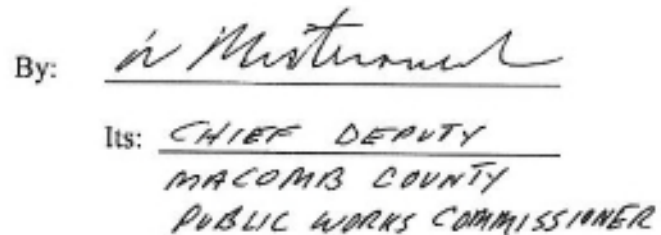 By:
Its: CHIEF DEPUTY
MACOMB COUNTY
PUBLIC WORKS COMMISSIONER